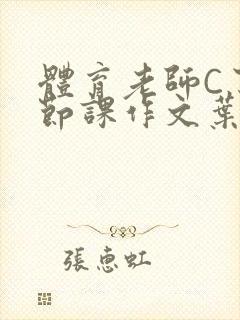 體育老師C
節課作文葉
張惠虹